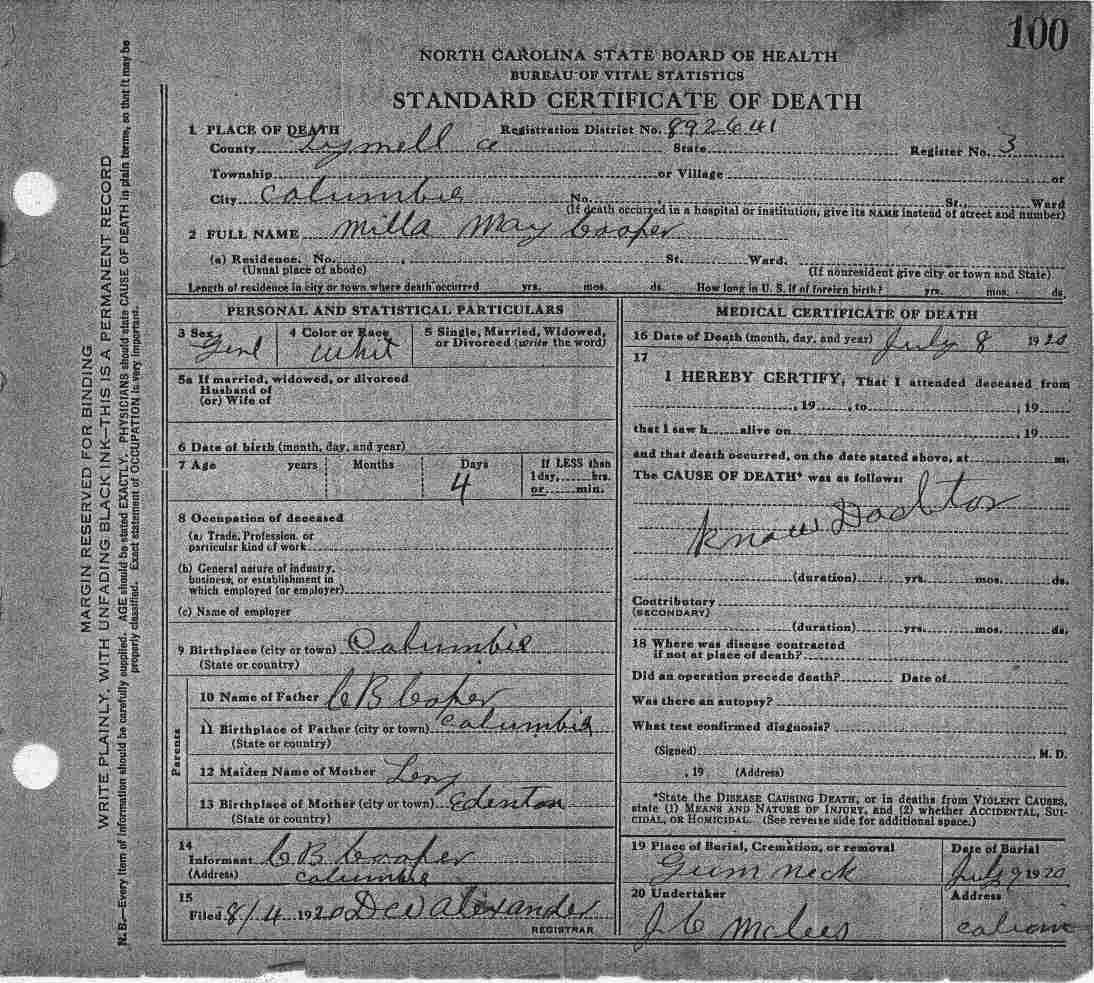 100
NORTH CAROLINA STATE BOARD OF HEALTH
BUREAU OF VITAL STATISTICS
STANDARD CERTIFICATE OF DEATH
MARGIN RESERVED FOR BINDING
WRITE PLAINLY, WITH UNFADING BLACK INK—THIS IS A PERMANENT RECORD
N. B.—Every item of information should be carefully supplied. AGE should be stated EXACTLY. PHYSICIANS should state CAUSE OF DEATH in plain terms, so that it may be
properly classified. Exact statement of OCCUPATION is very important.
1 PLACE OF DEATH Registration District No. 892-6441
County State Register No. 3
Township or Village or
City Columbia No. , St., Ward
(If death occurred in a hospital or institution, give its NAME instead of street and number)
2 FULL NAME Milla May Cooper
(a) Residence. No. , St. Ward.
(Usual place of abode) (If nonresident give city or town and State)
Length of residence in city or town where death occurred yrs. mos. ds. How long in U. S. if of foreign birth? yrs. mos. ds.
PERSONAL AND STATISTICAL PARTICULARS
3 Sex 4 Color or Race 5 Single, Married, Widowed,
or Divorced (write the word)
Girl Whit
5a If married, widowed, or divorced
Husband of
(or) Wife of
6 Date of birth (month, day, and year)
7 Age years Months Days If LESS than
1 day, hrs.
4 or min.
8 Occupation of deceased
(a) Trade, Profession, or
particular kind of work
(b) General nature of industry,
business, or establishment in
which employed (or employer)
(c) Name of employer
9 Birthplace (city or town) Columbia
(State or country)
Parents
10 Name of Father C B Cooper
11 Birthplace of Father (city or town) Columbia
(State or country)
12 Maiden Name of Mother
13 Birthplace of Mother (city or town) Edenton
(State or country)
14
Informant C B Cooper
(Address) Columbia
15
Filed 8/4 1920 Alexander
REGISTRAR
MEDICAL CERTIFICATE OF DEATH
16 Date of Death (month, day, and year) July 8 1920
17
I HEREBY CERTIFY, That I attended deceased from
, 19 , to , 19
that I saw h alive on , 19
and that death occurred, on the date stated above, at m.
The CAUSE OF DEATH* was as follows:
Know Docktor
(duration) yrs. mos. ds.
Contributory
(SECONDARY)
(duration) yrs. mos. ds.
18 Where was disease contracted
if not at place of death?
Did an operation precede death? Date of
Was there an autopsy?
What test confirmed diagnosis?
(Signed) M. D.
, 19 (Address)
*State the DISEASE CAUSING DEATH, or in deaths from VIOLENT CAUSES,
state (1) MEANS AND NATURE OF INJURY, and (2) whether ACCIDENTAL, SUI-
CIDAL, OR HOMICIDAL. (See reverse side for additional space.)
19 Place of Burial, Cremation, or removal Date of Burial
Gum Neck July 9 1920
20 Undertaker Address
J C McLees